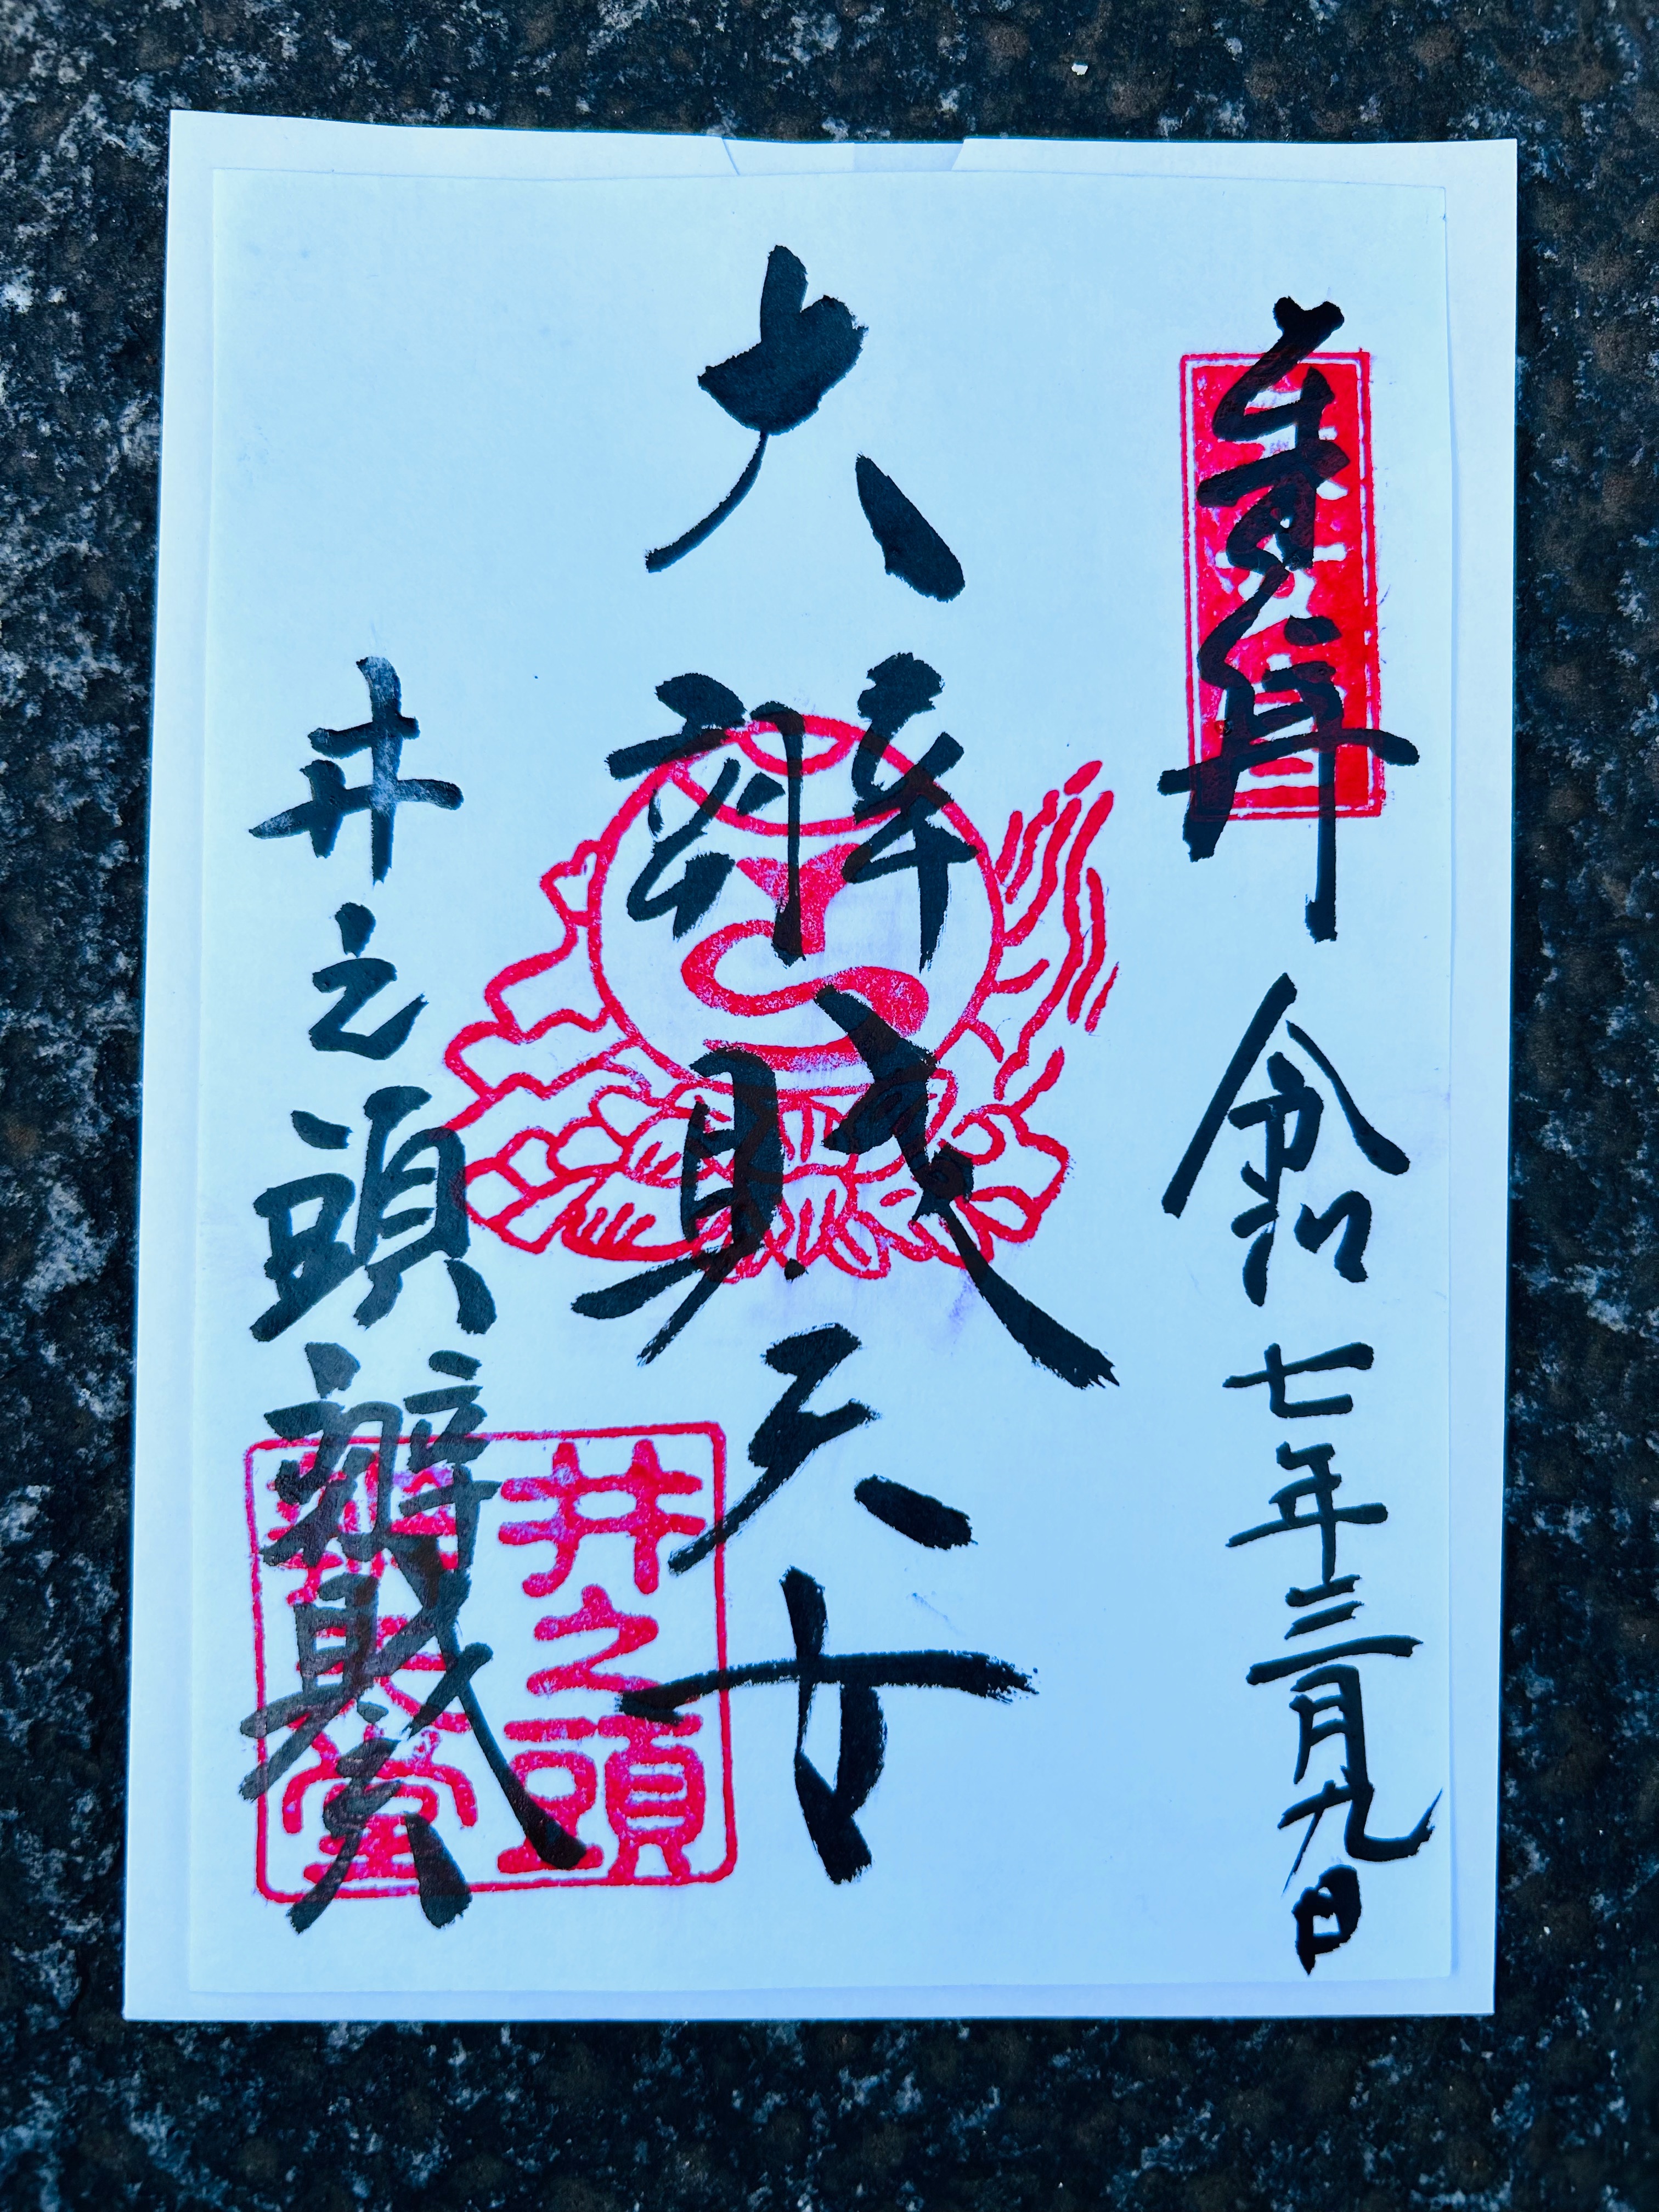 奉拝 令和七年三月九日
大辨財天女
井之頭辨財天
井之頭
辨財天堂